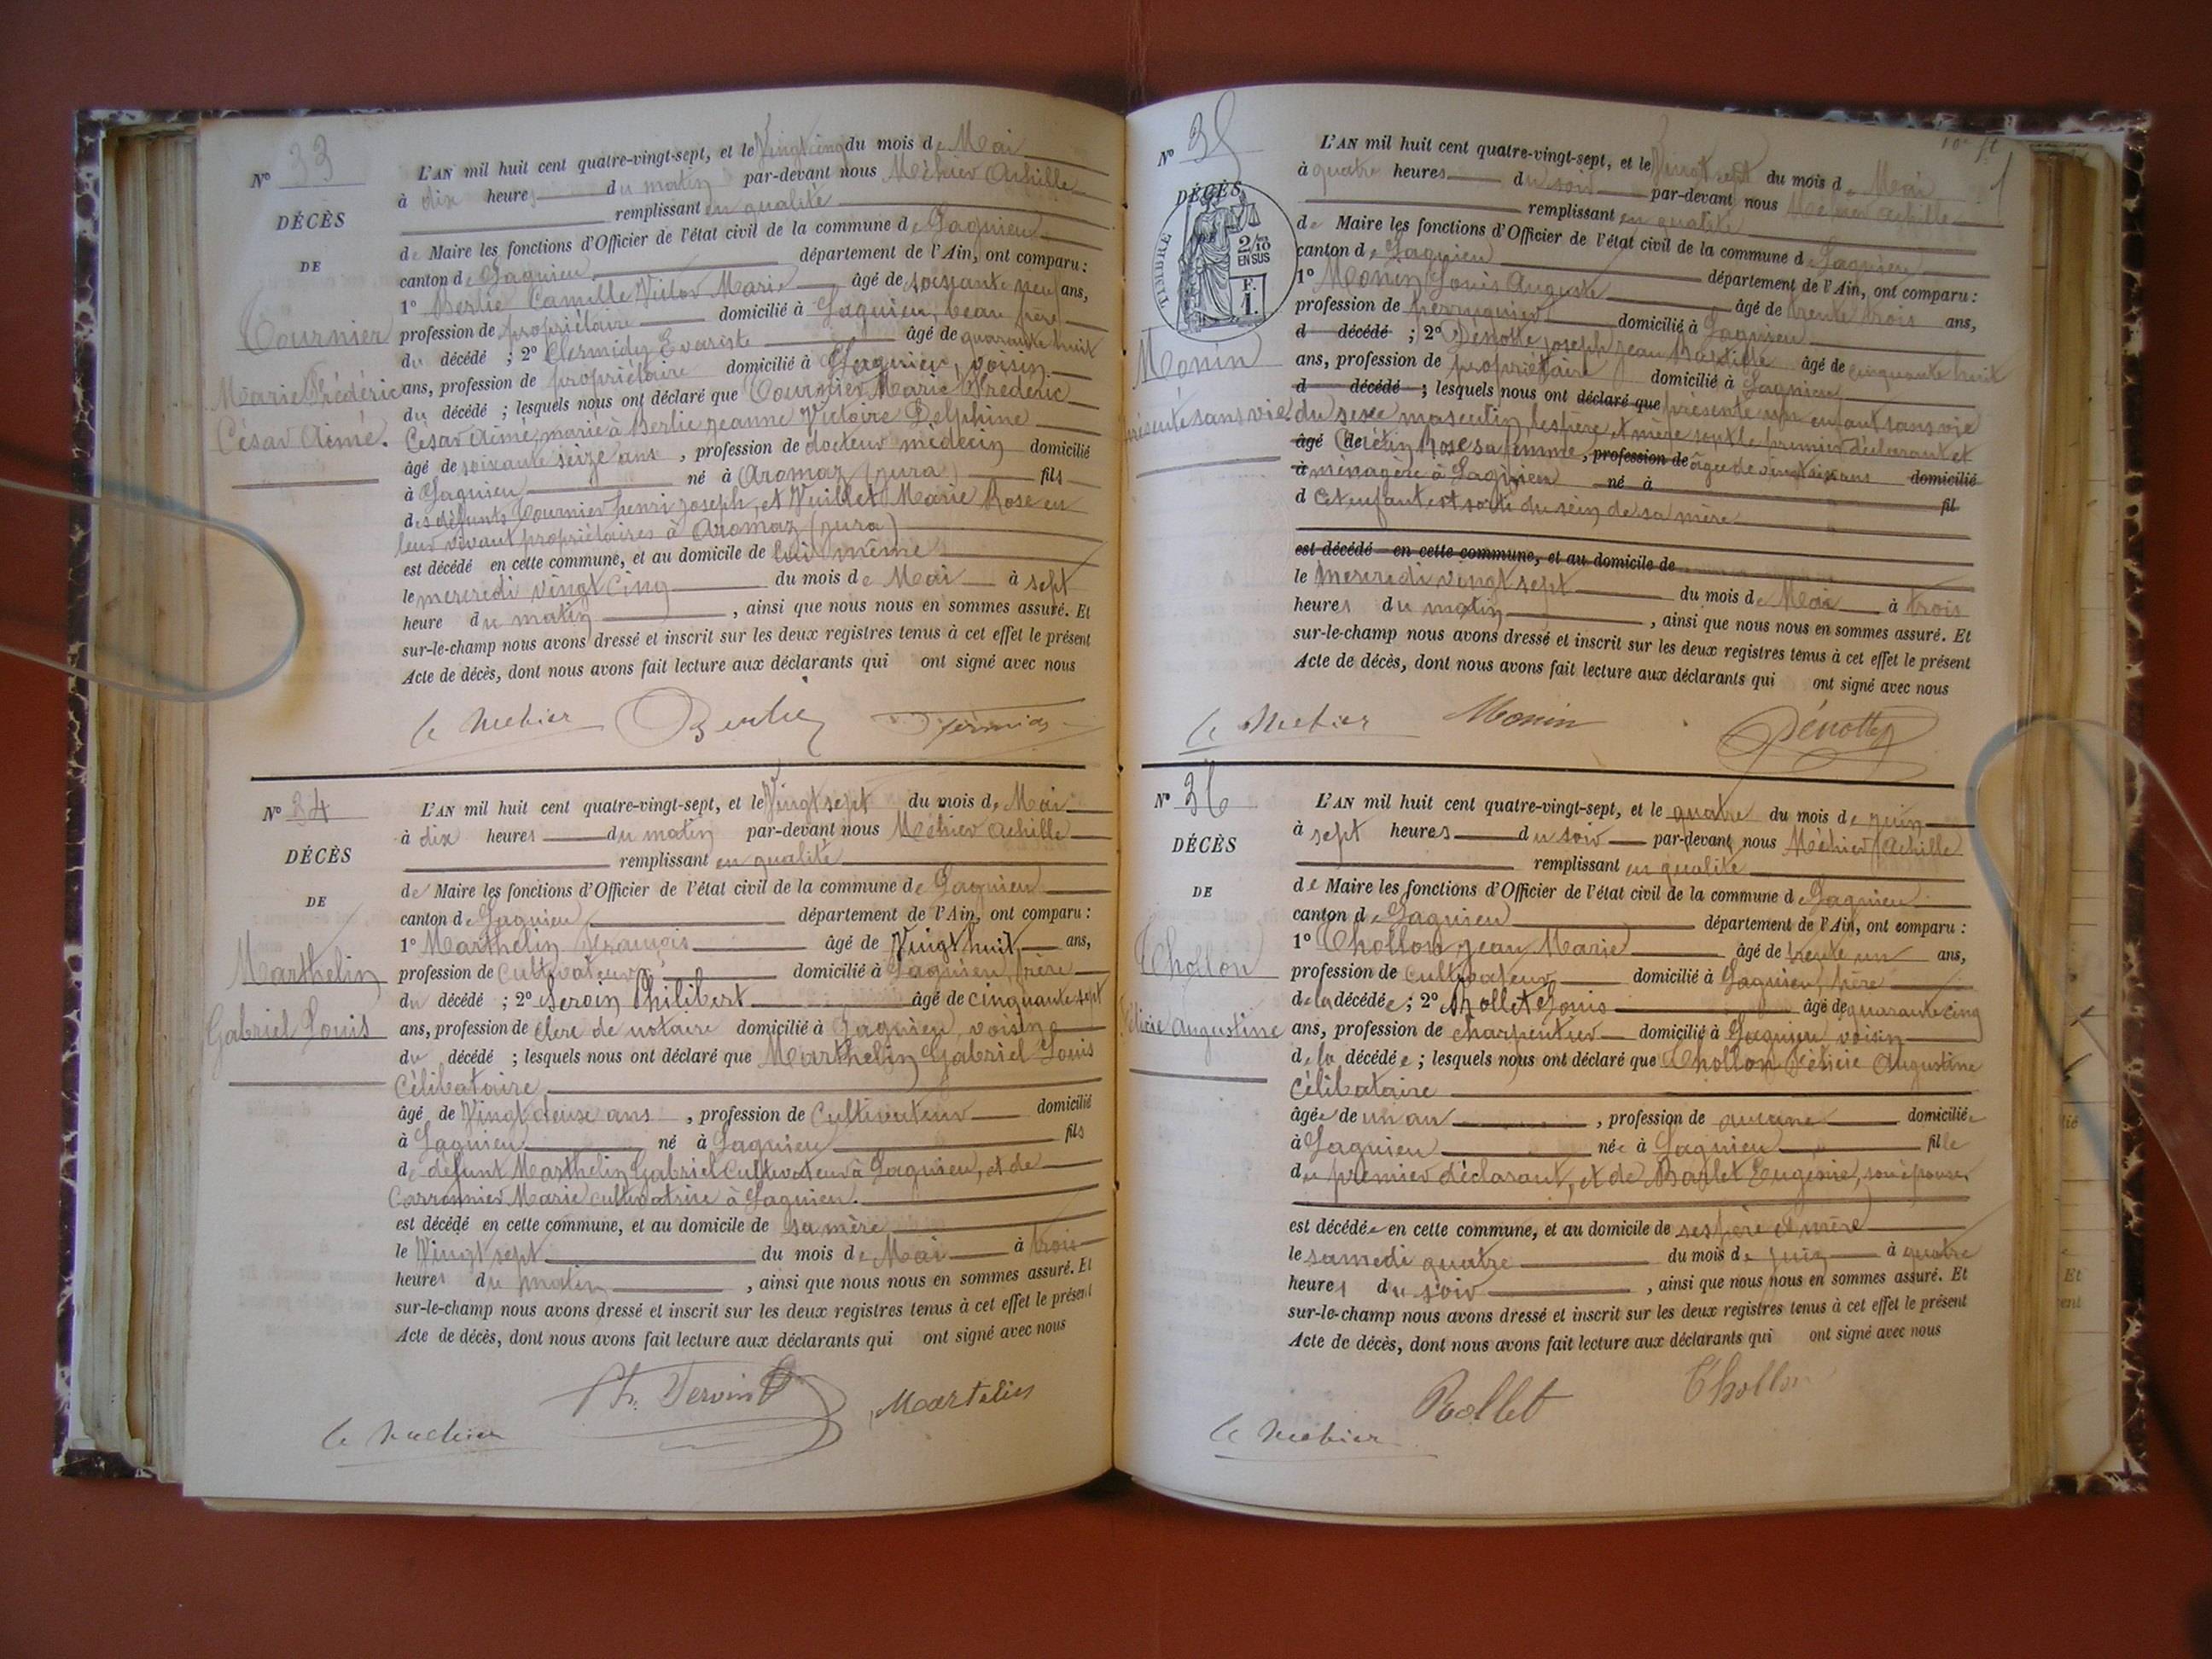 N° 33
DÉCÈS
DE
Tournier
Marie Frédéric
César Aimé.
L'AN mil huit cent quatre-vingt-sept, et le Vingt cinq du mois de Mai
à dix heures du matin par-devant nous Méhier Achille
remplissant en qualité
de Maire les fonctions d'Officier de l'état civil de la commune de Lagnieu
canton de Lagnieu département de l'Ain, ont comparu :
1° Berlie Camille Victor Marie âgé de soixante neuf ans,
profession de propriétaire domicilié à Lagnieu, beau frère
du décédé ; 2° Clermidy Evariste âgé de quarante huit
ans, profession de propriétaire domicilié à Lagnieu, voisin
du décédé ; lesquels nous ont déclaré que Tournier Marie Frédéric
César Aimé, marié à Berlie Jeanne Victoire Delphine
âgé de soixante seize ans , profession de docteur médecin domicilié
à Lagnieu né à Aromaz (jura) fils
des défunts Tournier henri joseph, et Vuillet Marie Rose en
leur vivant propriétaires à Aromaz (jura)
est décédé en cette commune, et au domicile de lui même
le mercredi vingt cinq du mois de Mai à sept
heure du matin , ainsi que nous nous en sommes assuré. Et
sur-le-champ nous avons dressé et inscrit sur les deux registres tenus à cet effet le présent
Acte de décès, dont nous avons fait lecture aux déclarants qui ont signé avec nous
Berlie
N° 34
DÉCÈS
DE
Marthelin
Gabriel Louis
L'AN mil huit cent quatre-vingt-sept, et le Vingt sept du mois de Mai
à dix heures du matin par-devant nous Méhier Achille
remplissant en qualité
de Maire les fonctions d'Officier de l'état civil de la commune de Lagnieu
canton de Lagnieu département de l'Ain, ont comparu :
1° Marthelin François âgé de Vingt huit ans,
profession de Cultivateur domicilié à Lagnieu, frère
du décédé ; 2° Servin Philibert âgé de cinquante sept
ans, profession de clerc de notaire domicilié à Lagnieu, voisin
du décédé ; lesquels nous ont déclaré que Marthelin Gabriel Louis
Célibataire
âgé de Vingt deuse ans , profession de Cultivateur domicilié
à Lagnieu né à Lagnieu fils
de défunt Marthelin Gabriel Cultivateur à Lagnieu, et de
Carronnier Marie cultivatrice à Lagnieu.
est décédé en cette commune, et au domicile de sa mère
le Vingt sept du mois de Mai à trois
heures du matin , ainsi que nous nous en sommes assuré. Et
sur-le-champ nous avons dressé et inscrit sur les deux registres tenus à cet effet le présent
Acte de décès, dont nous avons fait lecture aux déclarants qui ont signé avec nous
Ph. Servin
Martelin
N° 35
DÉCÈS
TIMBRE
2/10 EN SUS
F. 1.
Monin
présenté sans vie.
L'AN mil huit cent quatre-vingt-sept, et le Vingt sept du mois de Mai
à quatre heures du soir par-devant nous Méhier Achille
remplissant en qualité
de Maire les fonctions d'Officier de l'état civil de la commune de Lagnieu
canton de Lagnieu département de l'Ain, ont comparu :
1° Monin Louis Auguste âgé de trente trois ans,
profession de perruquier domicilié à Lagnieu
d décédé ; 2° Dénotte joseph jean Baptiste âgé de cinquante huit
ans, profession de propriétaire domicilié à Lagnieu
d décédé ; lesquels nous ont déclaré que présenté un enfant sans vie
du sexe masculin, les père et mère sont le premier déclarant et
âgé de Rose sa femme, profession de âgée de domicilié
à ménagère à Lagnieu né à
d Cet enfant est sorti du sein de sa mère fil
est décédé en cette commune, et au domicile de
le mercredi vingt sept du mois de Mai à trois
heures du matin , ainsi que nous nous en sommes assuré. Et
sur-le-champ nous avons dressé et inscrit sur les deux registres tenus à cet effet le présent
Acte de décès, dont nous avons fait lecture aux déclarants qui ont signé avec nous
Monin
Dénotte
N° 36
DÉCÈS
DE
Thollon
Félicie Augustine
L'AN mil huit cent quatre-vingt-sept, et le quatre du mois de juin
à sept heures du soir par-devant nous Méhier Achille
remplissant en qualité
de Maire les fonctions d'Officier de l'état civil de la commune de Lagnieu
canton de Lagnieu département de l'Ain, ont comparu :
1° Thollon Jean Marie âgé de trente un ans,
profession de Cultivateur domicilié à Lagnieu, père
de la décédée ; 2° Rollet Louis âgé de quarante cinq
ans, profession de charpentier domicilié à Lagnieu voisin
de la décédée ; lesquels nous ont déclaré que Thollon Félicie Augustine
Célibataire
âgée de un an , profession de aucune domiciliée
à Lagnieu née à Lagnieu fille
du premier déclarant, et de Barlet Eugénie, son épouse
est décédée en cette commune, et au domicile de ses père et mère
le samedi quatre du mois de juin à quatre
heures du soir , ainsi que nous nous en sommes assuré. Et
sur-le-champ nous avons dressé et inscrit sur les deux registres tenus à cet effet le présent
Acte de décès, dont nous avons fait lecture aux déclarants qui ont signé avec nous
Rollet
Thollon